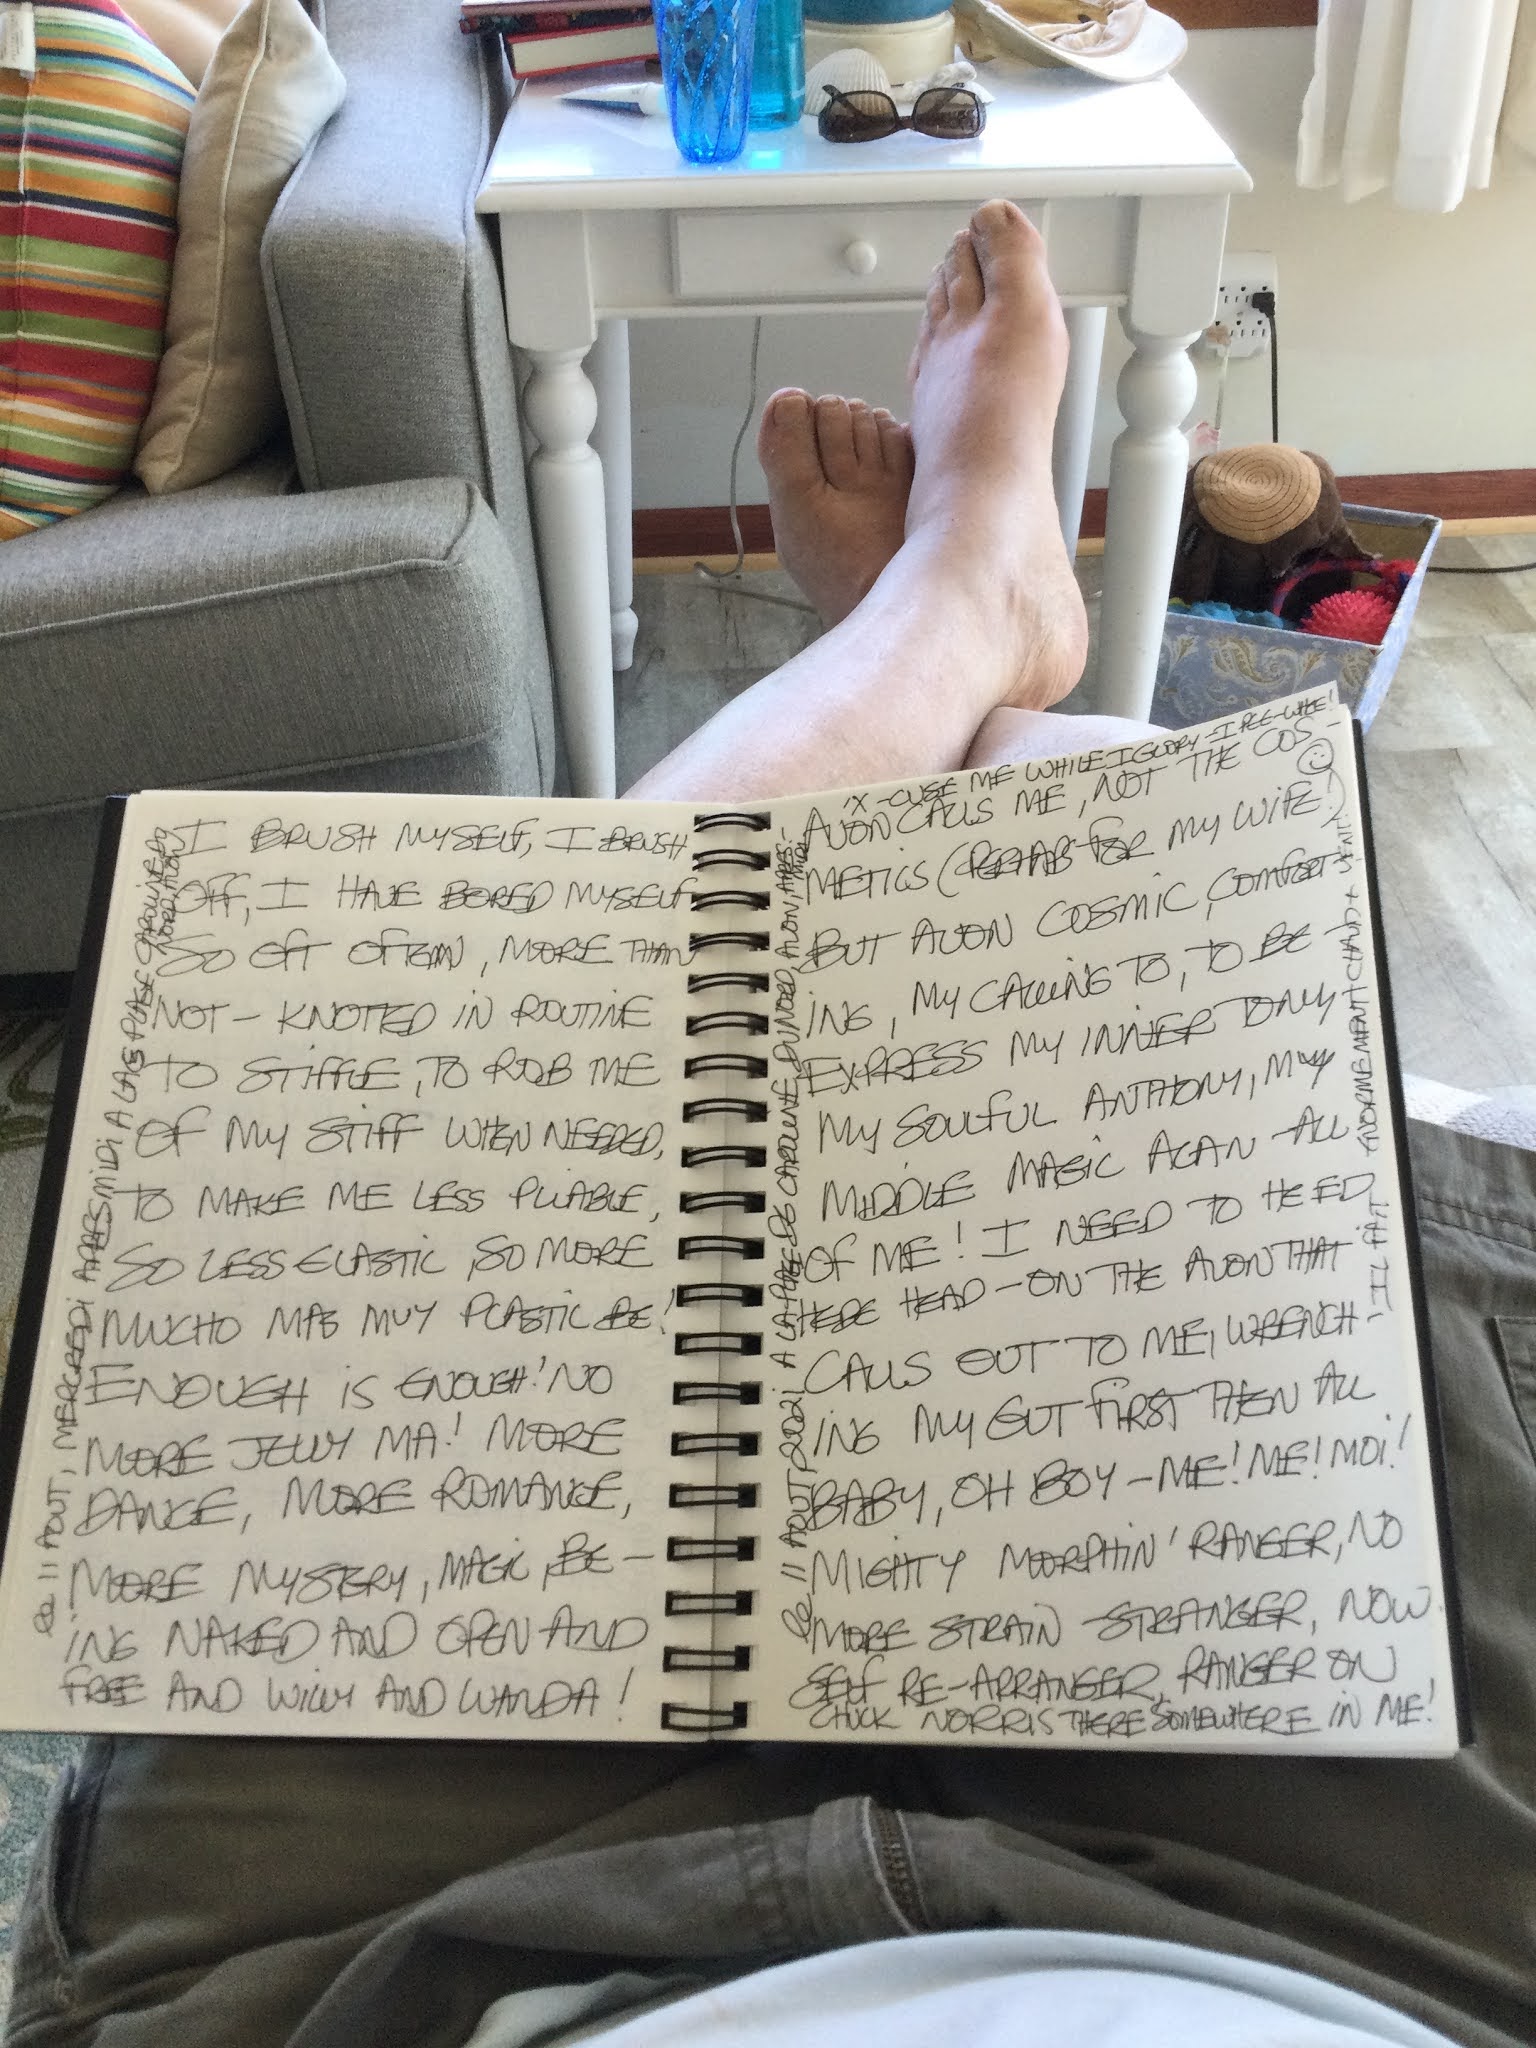 I BRUSH MYSELF, I BRUSH
OFF, I HAVE BORED MYSELF
SO OFT OFTEN, MORE THAN
NOT - KNOTTED IN ROUTINE
TO STIFFLE, TO ROB ME
OF MY STIFF WHEN NEEDED,
TO MAKE ME LESS PLIABLE,
SO LESS ELASTIC, SO MORE
MUCHO MAS MUY PLASTIC BE!
ENOUGH IS ENOUGH! NO
MORE JELLY MA! MORE
DANCE, MORE ROMANCE,
MORE MYSTERY, MAGIC, BE-
ING NAKED AND OPEN AND
FREE AND WILLY AND WANDA!
Le 11 AOUT, MERCREDI APRES MIDI, A LA PLAGE CAROLINE DU
NORD, AVON
'X-CUSE ME WHILE I GLORY - I PEE-WHEE!
AVON CALLS ME, NOT THE COS-
METICS (PERHAPS FOR MY WIFE)
BUT AVON COSMIC, COMFORT-
ING, MY CALLING TO, TO BE
EXPRESS MY INNER TONY
MY SOULFUL ANTHONY, MY
MIDDLE MAGIC AGAN - ALL
OF ME! I NEED TO HEED
HERE HEAD-ON THE AVON THAT
CALLS OUT TO ME, WRENCH-
ING MY GUT FIRST THEN ALL
BABY, OH BOY - ME! ME! MOI!
MIGHTY MORPHIN' RANGER, NO
MORE STRAIN - STRANGER, NOW
SELF RE-ARRANGER, RANGER ON
CHUCK NORRIS THERE SOMEWHERE IN ME!
Le 11 AOUT, 2021 A LA PLAGE DE CAROLINE DU NORD, AVON, APRES-
MIDI
-IL FAIT ENORMEMENT CHAUD + VENT!